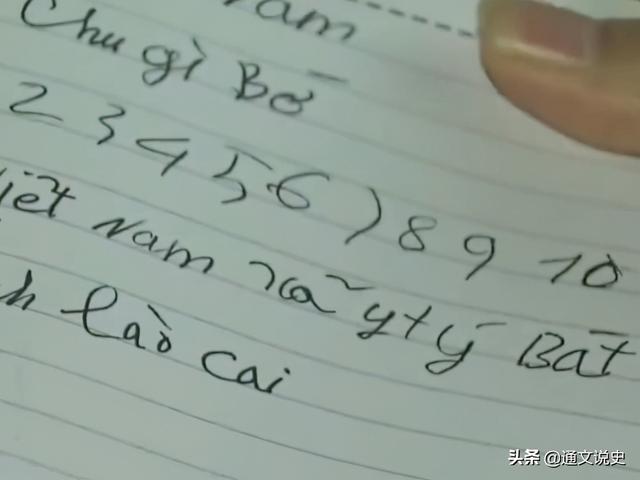 Chu gì Bở
2 3 4 5 6 7 8 9 10
iệt Nam xã y tý Bát
h Lào Cai
头条 @通文说史